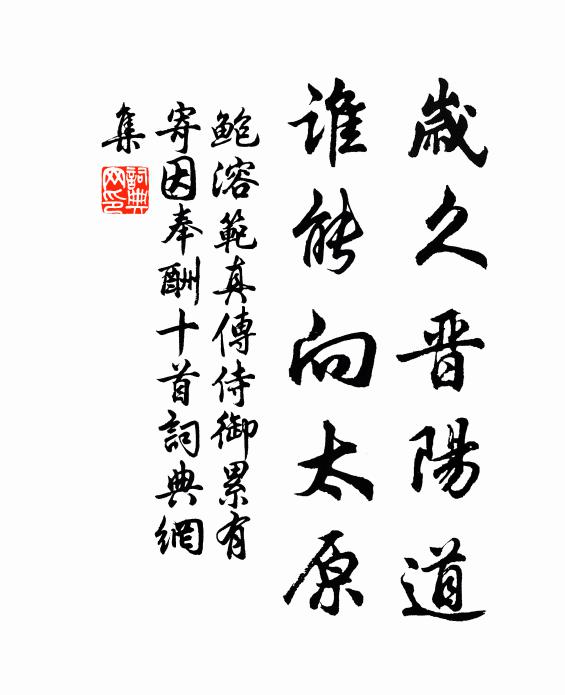 歲久晋陽道
誰能向太原
鮑溶範真傳侍御累有
寄因奉酬十首詞典網
集
詞典
网印